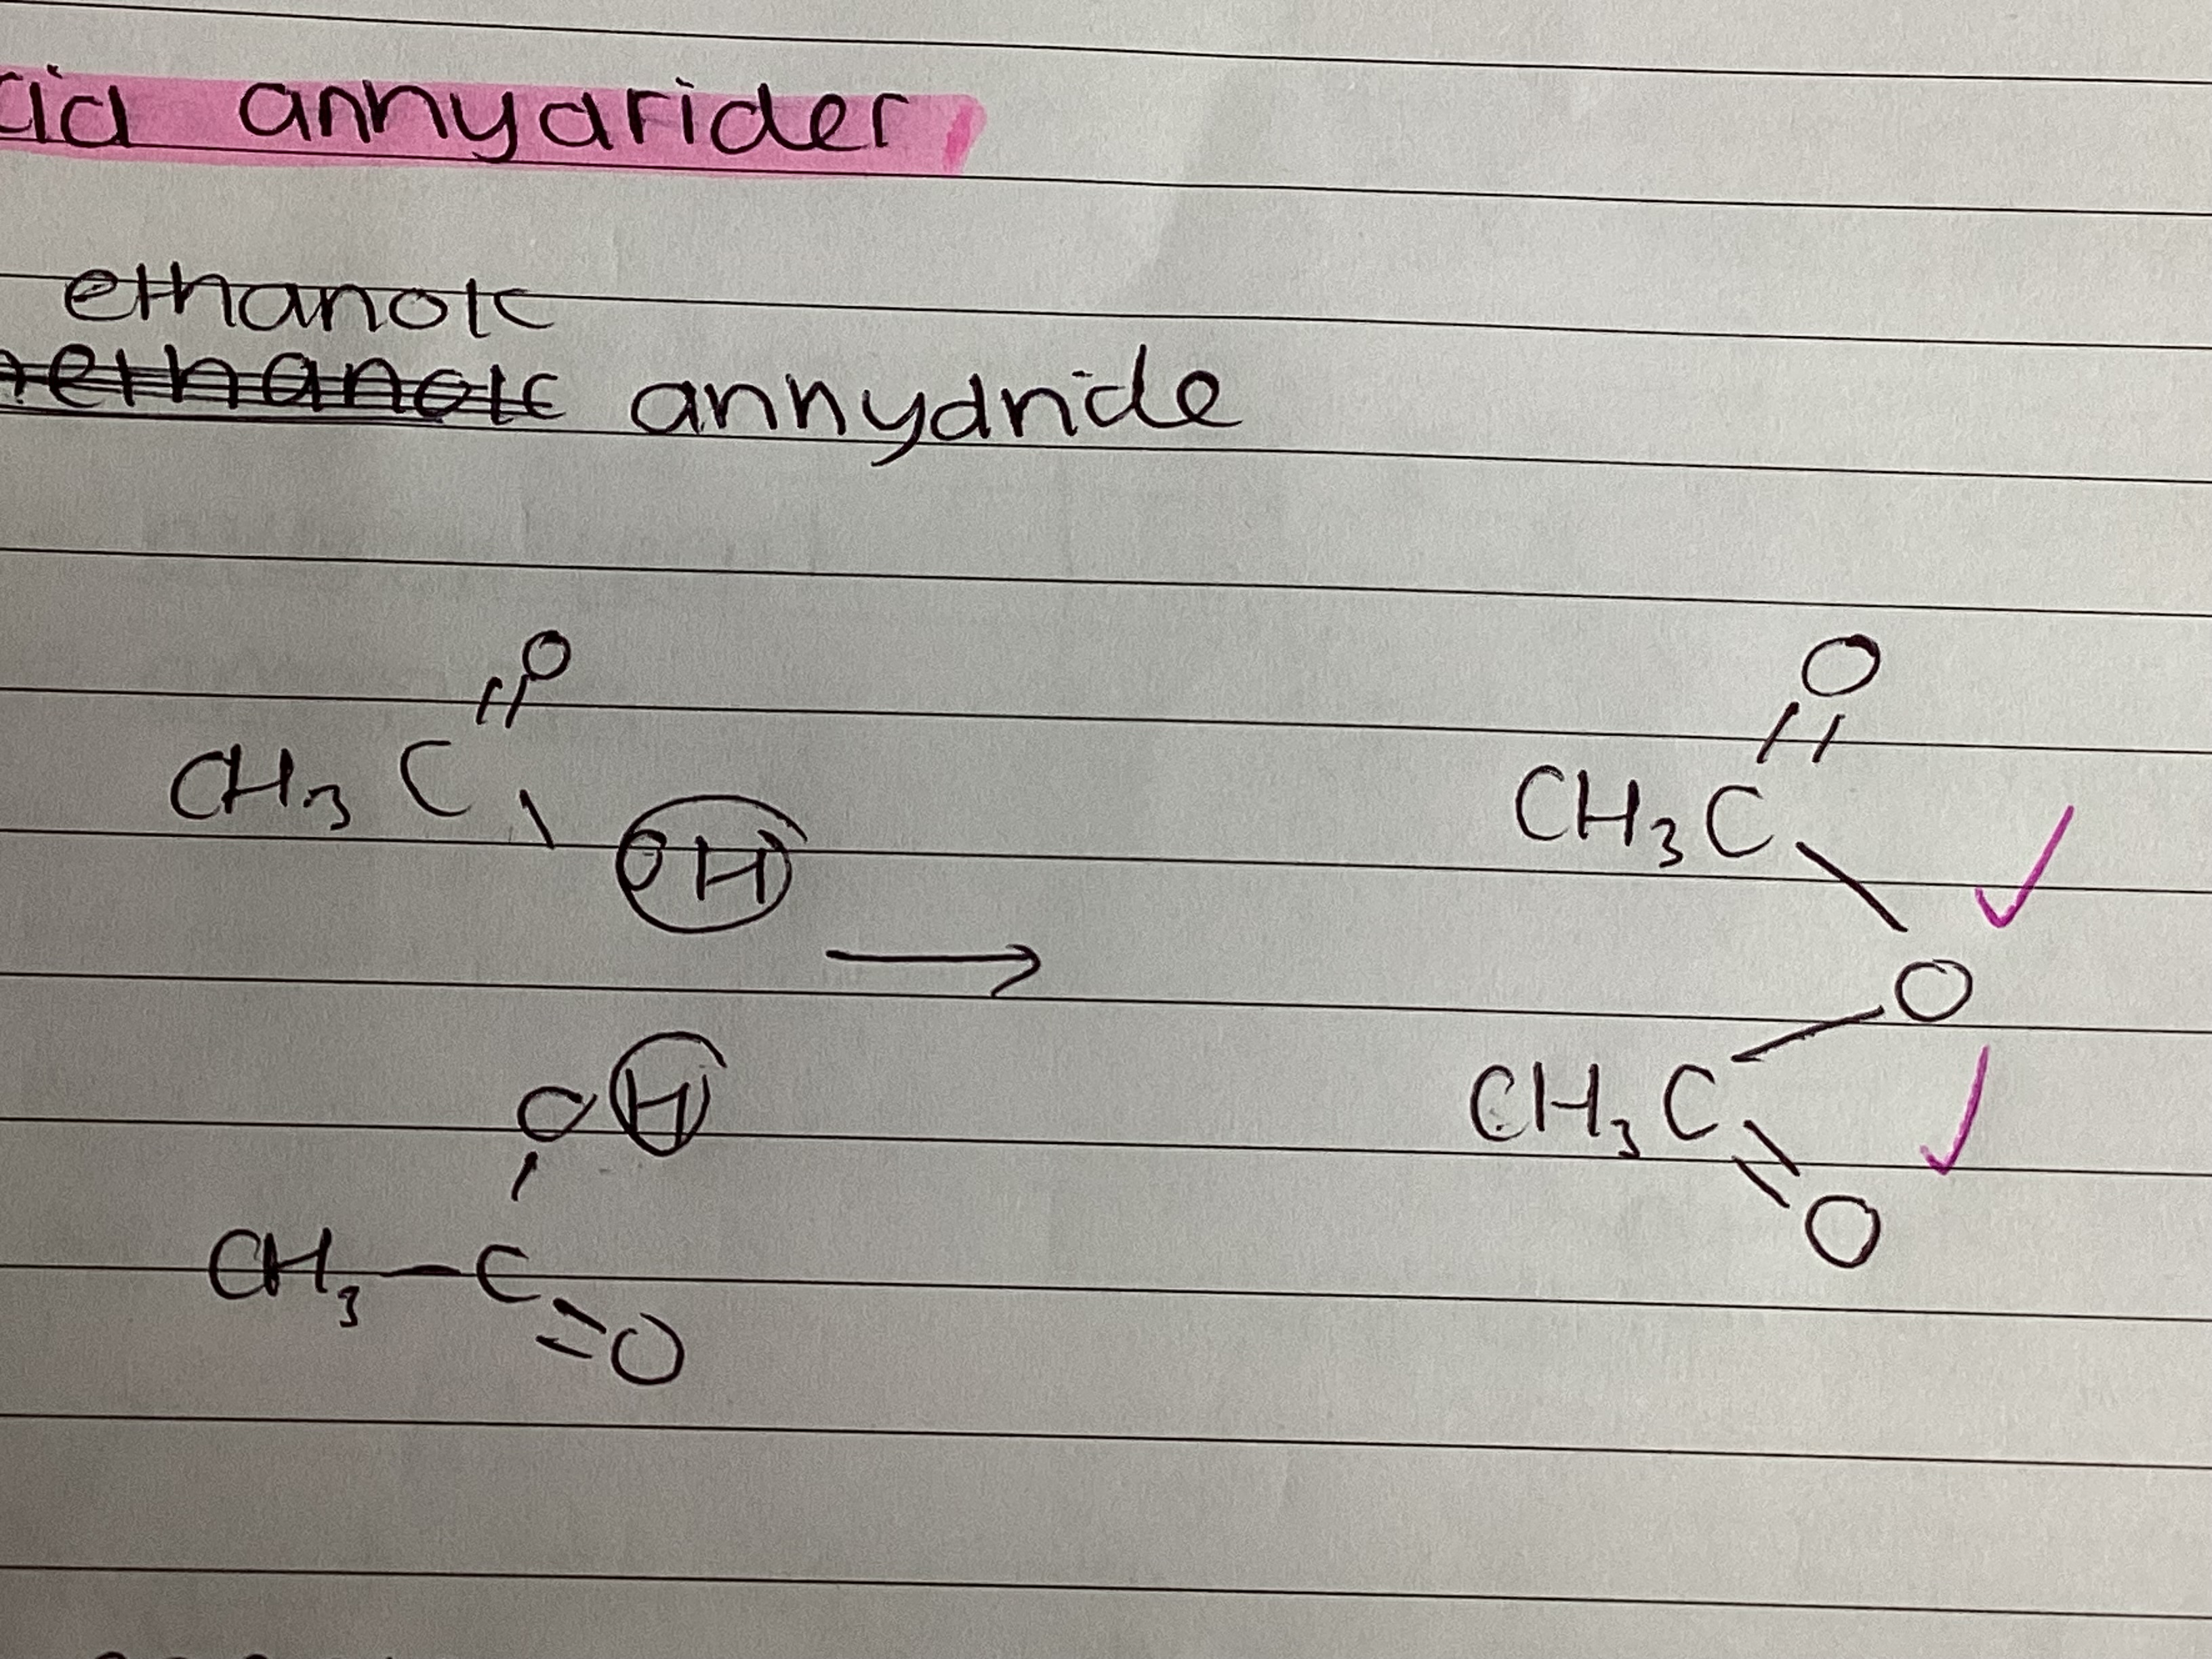 acid anhydrides
ethanoic
methanoic anhydride
O
CH3 C
OH
OH
CH3 — C
O
O
CH3 C
O
CH3 C
O